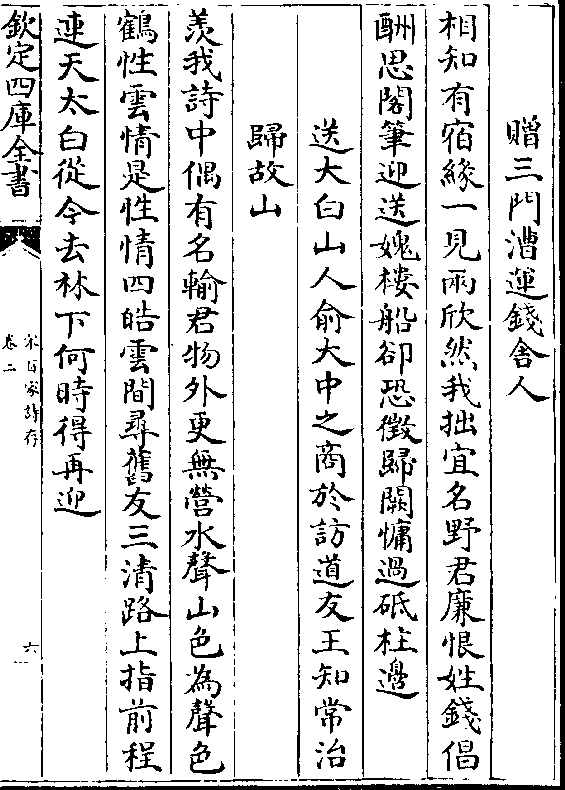 贈三門漕運錢舍人
相知有宿緣一見兩欣然我拙宜名野君廉恨姓錢倡
酬思閣筆迎送媿樓船卻恐徴歸闕慵過砥柱邊
送大白山人俞大中之商於訪道友王知常洽
歸故山
羡我詩中偶有名輸君物外更無營水聲山色為聲色
鶴性雲情是性情四皓雲間尋舊友三清路上指前程
連天太白從今去林下何時得再迎
欽定四庫全書
宋百家詩存
卷二
六